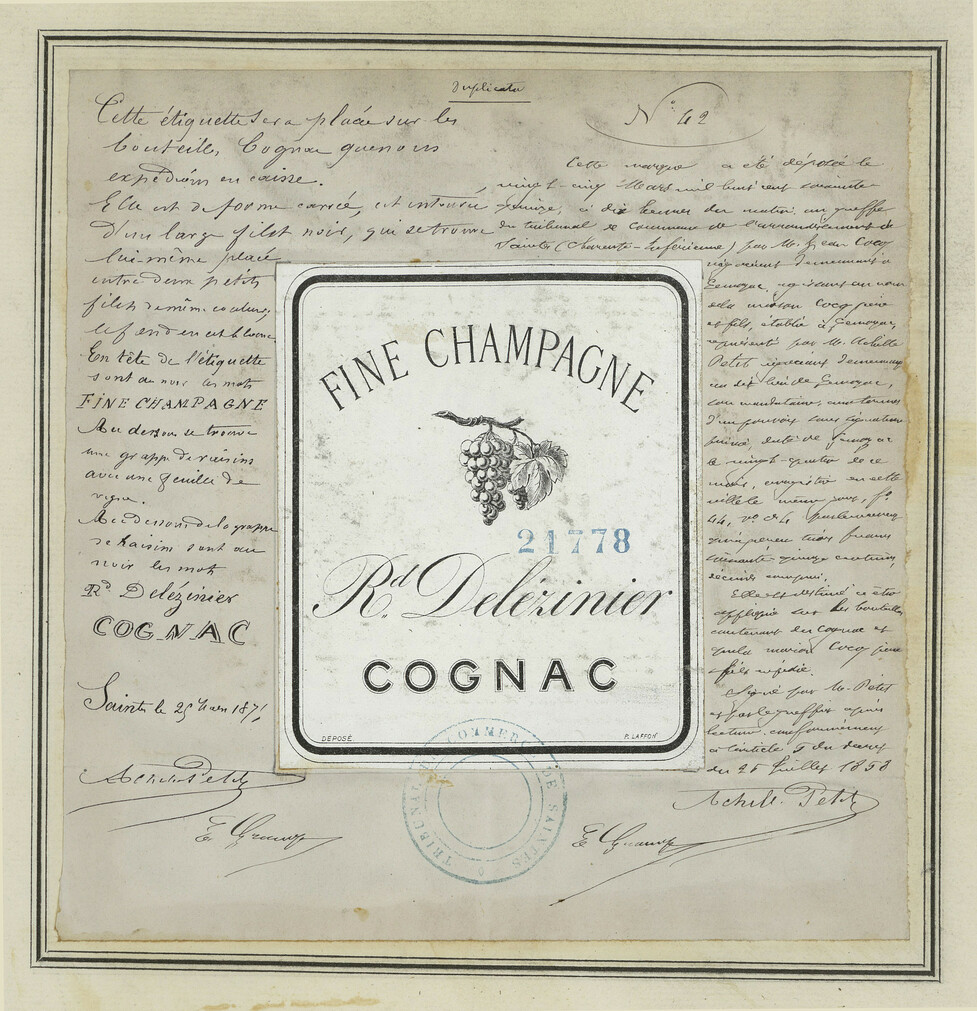 Duplicata
Cette étiquette sera placée sur les
bouteilles Cognac que nous
expédions en caisse.
Elle est de forme carrée, est entourée
d'un large filet noir, qui se trouve
lui-même placé
entre deux petits
filets de même couleur,
le fond en est blanc
En tête de l'étiquette
sont au noir les mots
FINE CHAMPAGNE
Au dessous se trouve
une grappe de raisins
avec une feuille de
vigne.
Au dessous de la grappe
de raisins sont au
noir les mots
Rd. Delézinier
COGNAC
Saintes le 25 Mars 1871
Achille Petit
N° 42
Cette marque a été déposée le
vingt-cinq Mars mil huit cent soixante
quinze, à dix heures du matin au greffe
du tribunal de commerce de l'arrondissement de
Saintes (Charente-Inférieure) par M. Jean Cocq
négociant demeurant à
agissant au nom
de la maison Cocq père
et fils, établie à
représenté par M. Achille
Petit négociant demeurant
au dit lieu de
son mandataire, aux termes
d'un pouvoir sous signature
privée, daté de
le vingt-quatre de ce
mois, enregistré en cette
ville le même jour, f°
44, v°
trois francs
soixante quinze centimes,
décimes compris.
Elle est destinée à être
appliquée sur les bouteilles
contenant du Cognac et
que la maison Cocq père
et fils expédie.
Signé par M. Petit
et par le greffier après
lecture conformément
à l'article 5 du décret
du 26 Juillet 1858
Achille Petit
FINE CHAMPAGNE
21778
Rd. Delézinier
COGNAC
DÉPOSÉ
P. LAFFON
TRIBUNAL DE COMMERCE DE SAINTES